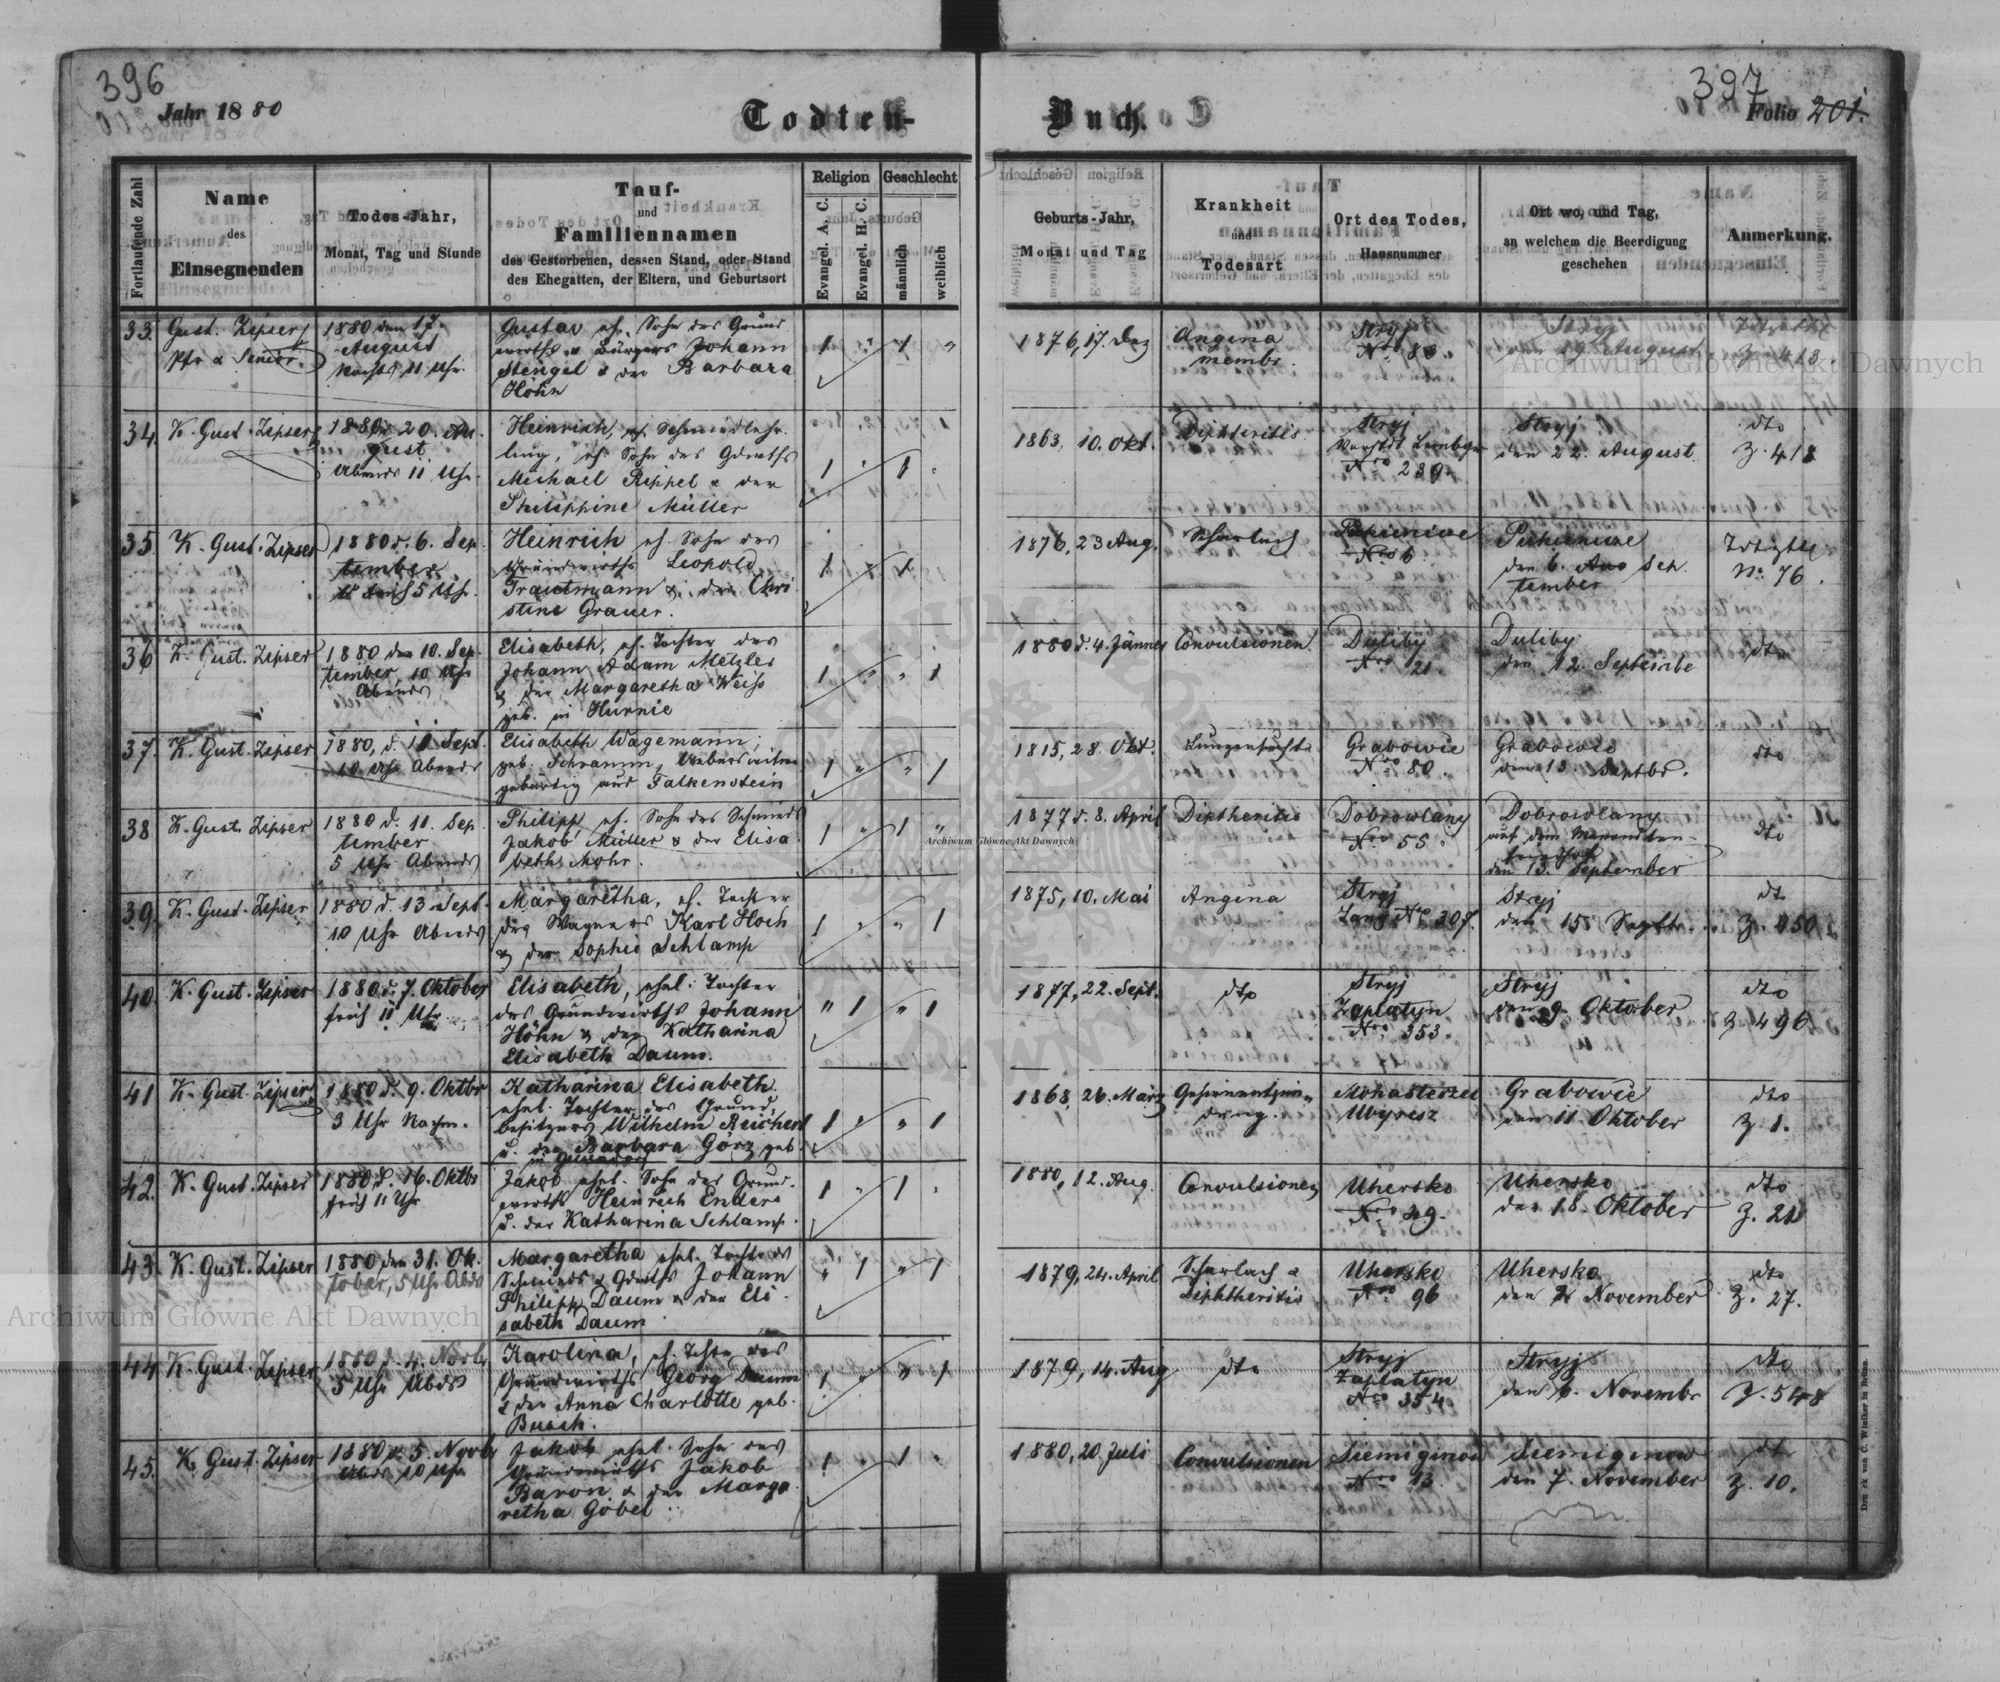 396
Jahr 1880
Todten-
Buch.
397
Folio 201.
Fortlaufende Zahl
Name
des
Einsegnenden
Todes-Jahr,
Monat, Tag und Stunde
Tauf-
und
Familiennamen
des Gestorbenen, dessen Stand, oder Stand
des Ehegatten, der Eltern, und Geburtsort
Religion
Evangel. A. C.
Evangel. H. C.
Geschlecht
männlich
weiblich
Geburts-Jahr,
Monat und Tag
Krankheit
und
Todesart
Ort des Todes,
Hausnummer
Ort wo, und Tag,
an welchem die Beerdigung
geschehen
Anmerkung.
33. Gust. Zipser
Pfr & Senior.
1880 den 17.
August
Nachts 11 Uhr.
Gustav eh. Sohn des Grund
wirths & Bürgers Johann
Stengel & der Barbara
Höhn
1 " 1 "
1876, 17. Dez
Angina
membr.
Stryj
Nro 83.
Stryj
den 19. August
Z. 413.
34. K. Gust. Zipser
1880 d. 20. Au-
gust
Abends 11 Uhr.
Heinrich, eh. Schmiedlehr-
ling, eh. Sohn des Gdwths
Michael Rippel & der
Philippine Müller
1 " 1 "
1863, 10. Okt.
Diphteritis
Stryj
Vorstdt Lemberger
Nro 239.
Stryj
den 22. August
dto
Z. 418
35. K. Gust. Zipser
1880 d. 6. Sep
tember
früh 5 Uhr.
Heinrich eh. Sohn des
Grundwirths Leopold
Trautmann & der Chri
stine Grauer.
1 1
1876, 23 Aug.
Scharlach
Nro 6
den 6. Sep.
tember
No. 76.
36 K. Gust. Zipser
1880 den 10. Sep-
tember, 10 Uhr
Abends
Elisabeth, eh. Tochter des
Johann Adam Metzler
& der Margaretha Weiss
geb. in Hurnie
1 " " 1
1880 d. 4. Jänner
Convulsionen
Duliby
Nro 21.
Duliby
den 12. Septembe
dto
37. K. Gust. Zipser
1880, d. 11 Sept.
10 Uhr Abends
Elisabeth Wagemann,
geb. Schramm,
gebürtig aus Falkenstein
1 " " 1
1815, 28. Okt.
Lungensucht
Grabowie
Nro 80.
Grabowie
den 13. Septbr.
dto
38 K. Gust. Zipser
1880 d. 11. Sep
tember
5 Uhr Abends
Philipp eh. Sohn des Schmieds
Jakob Müller & der Elisa
beth Mohr.
1 " 1 "
1877 d. 8. April
Diptheritis
Dobrowlany
No. 55.
Dobrowlany
auf dem Mennoniten-
friedhof
den 13. September
dto
39. K. Gust. Zipser
1880 d. 13. Sept.
10 Uhr Abends
Margaretha, eh. Tochter
des Wagners Karl Hoch
& der Sophie Schlamp
1 " " 1
1875, 10. Mai
Angina
Stryj
Lany Nro 307.
Stryj
den 15. Septbr.
dt
Z. 450
40. K. Gust. Zipser
1880 d. 7. Oktober
früh 11 Uhr.
Elisabeth, ehel. Tochter
des Grundwirths Johann
Höhn & der Katharina
Elisabeth Daum.
" 1 " 1
1877, 22. Sept.
dto
Stryj
Zaplatyn
Nro 353.
Stryj
den 9. Oktober
dto
Z. 496
41 K. Gust. Zipser
1880 d. 9. Oktbr
3 Uhr Nachm.
Katharina Elisabeth
ehel. Tochter des Grund
besitzers Wilhelm Reichert
u. der Barbara Görz geb.
1 " " 1
1868, 26. März
Gehirnentzün-
dung.
Monasterzec
Ubyresz
Grabowie
den 11. Oktober
dto
Z. 1.
42. K. Gust. Zipser
1880 d. 16. Oktbr
früh 11 Uhr
Jakob ehel. Sohn des Grund-
wirths Heinrich Enders
u. der Katharina Schlamp.
1 " 1 "
1880, 12. Aug.
Convulsionen
Uhersko
Nro 29.
Uhersko
den 18. Oktober
dto
Z. 21
43. K. Gust. Zipser
1880 den 31. Ok-
tober, 5 Uhr Abds
Margaretha ehel. Tochter d
Schmieds & Gdwths Johann
Philipp Daum & der Eli-
sabeth Daum
" 1 " 1
1879, 24. April
Scharlach &
Diphtheritis
Uhersko
Nro 96
Uhersko
den 2 November
dto
Z. 27.
44 K. Gust. Zipser
1880 d. 4. Novb.
5 Uhr Abds
Karolina, eh. Tchtr des
Grundwirths Georg Daum
& der Anna Charlotte geb.
Busch.
1 " " 1
1879, 14. Aug
dto
Stryj
Zaplatyn
Nro 354
Stryj
den 6. Novembr
dto
Z. 548
45. K. Gust. Zipser
1880 d. 5. Novb
Abds 10 Uhr
Jakob ehel. Sohn des
Grundwirths Jakob
Baron & der Marga
retha Göbel
1 " 1 "
1880, 20. Juli
Convulsionen
Siemiginow
Nro 13
Siemiginow
den 7. November
dt
Z. 10.
Druck von C. Winiker in Brünn.
Archiwum Główne Akt Dawnych
Archiwum Główne Akt Dawnych
Archiwum Główne Akt Dawnych